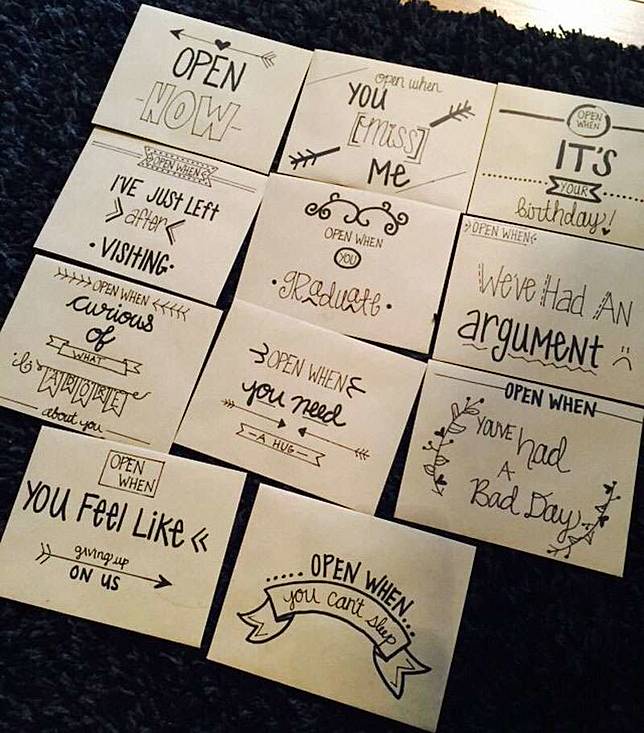 OPEN
NOW
open when
YOU
[miss]
Me
OPEN
WHEN
IT'S
YOUR
birthday!
OPEN WHEN
I'VE JUST LEFT
after
VISITING
OPEN WHEN
YOU
graduate
OPEN WHEN
We've Had AN
argument
OPEN WHEN
curious
OF
WHAT
i
ADORE
about you
OPEN WHEN
you need
A HUG
OPEN WHEN
YOU'VE had
A
Bad Day
OPEN
WHEN
YOU Feel Like
giving up
ON US
OPEN WHEN...
you can't sleep